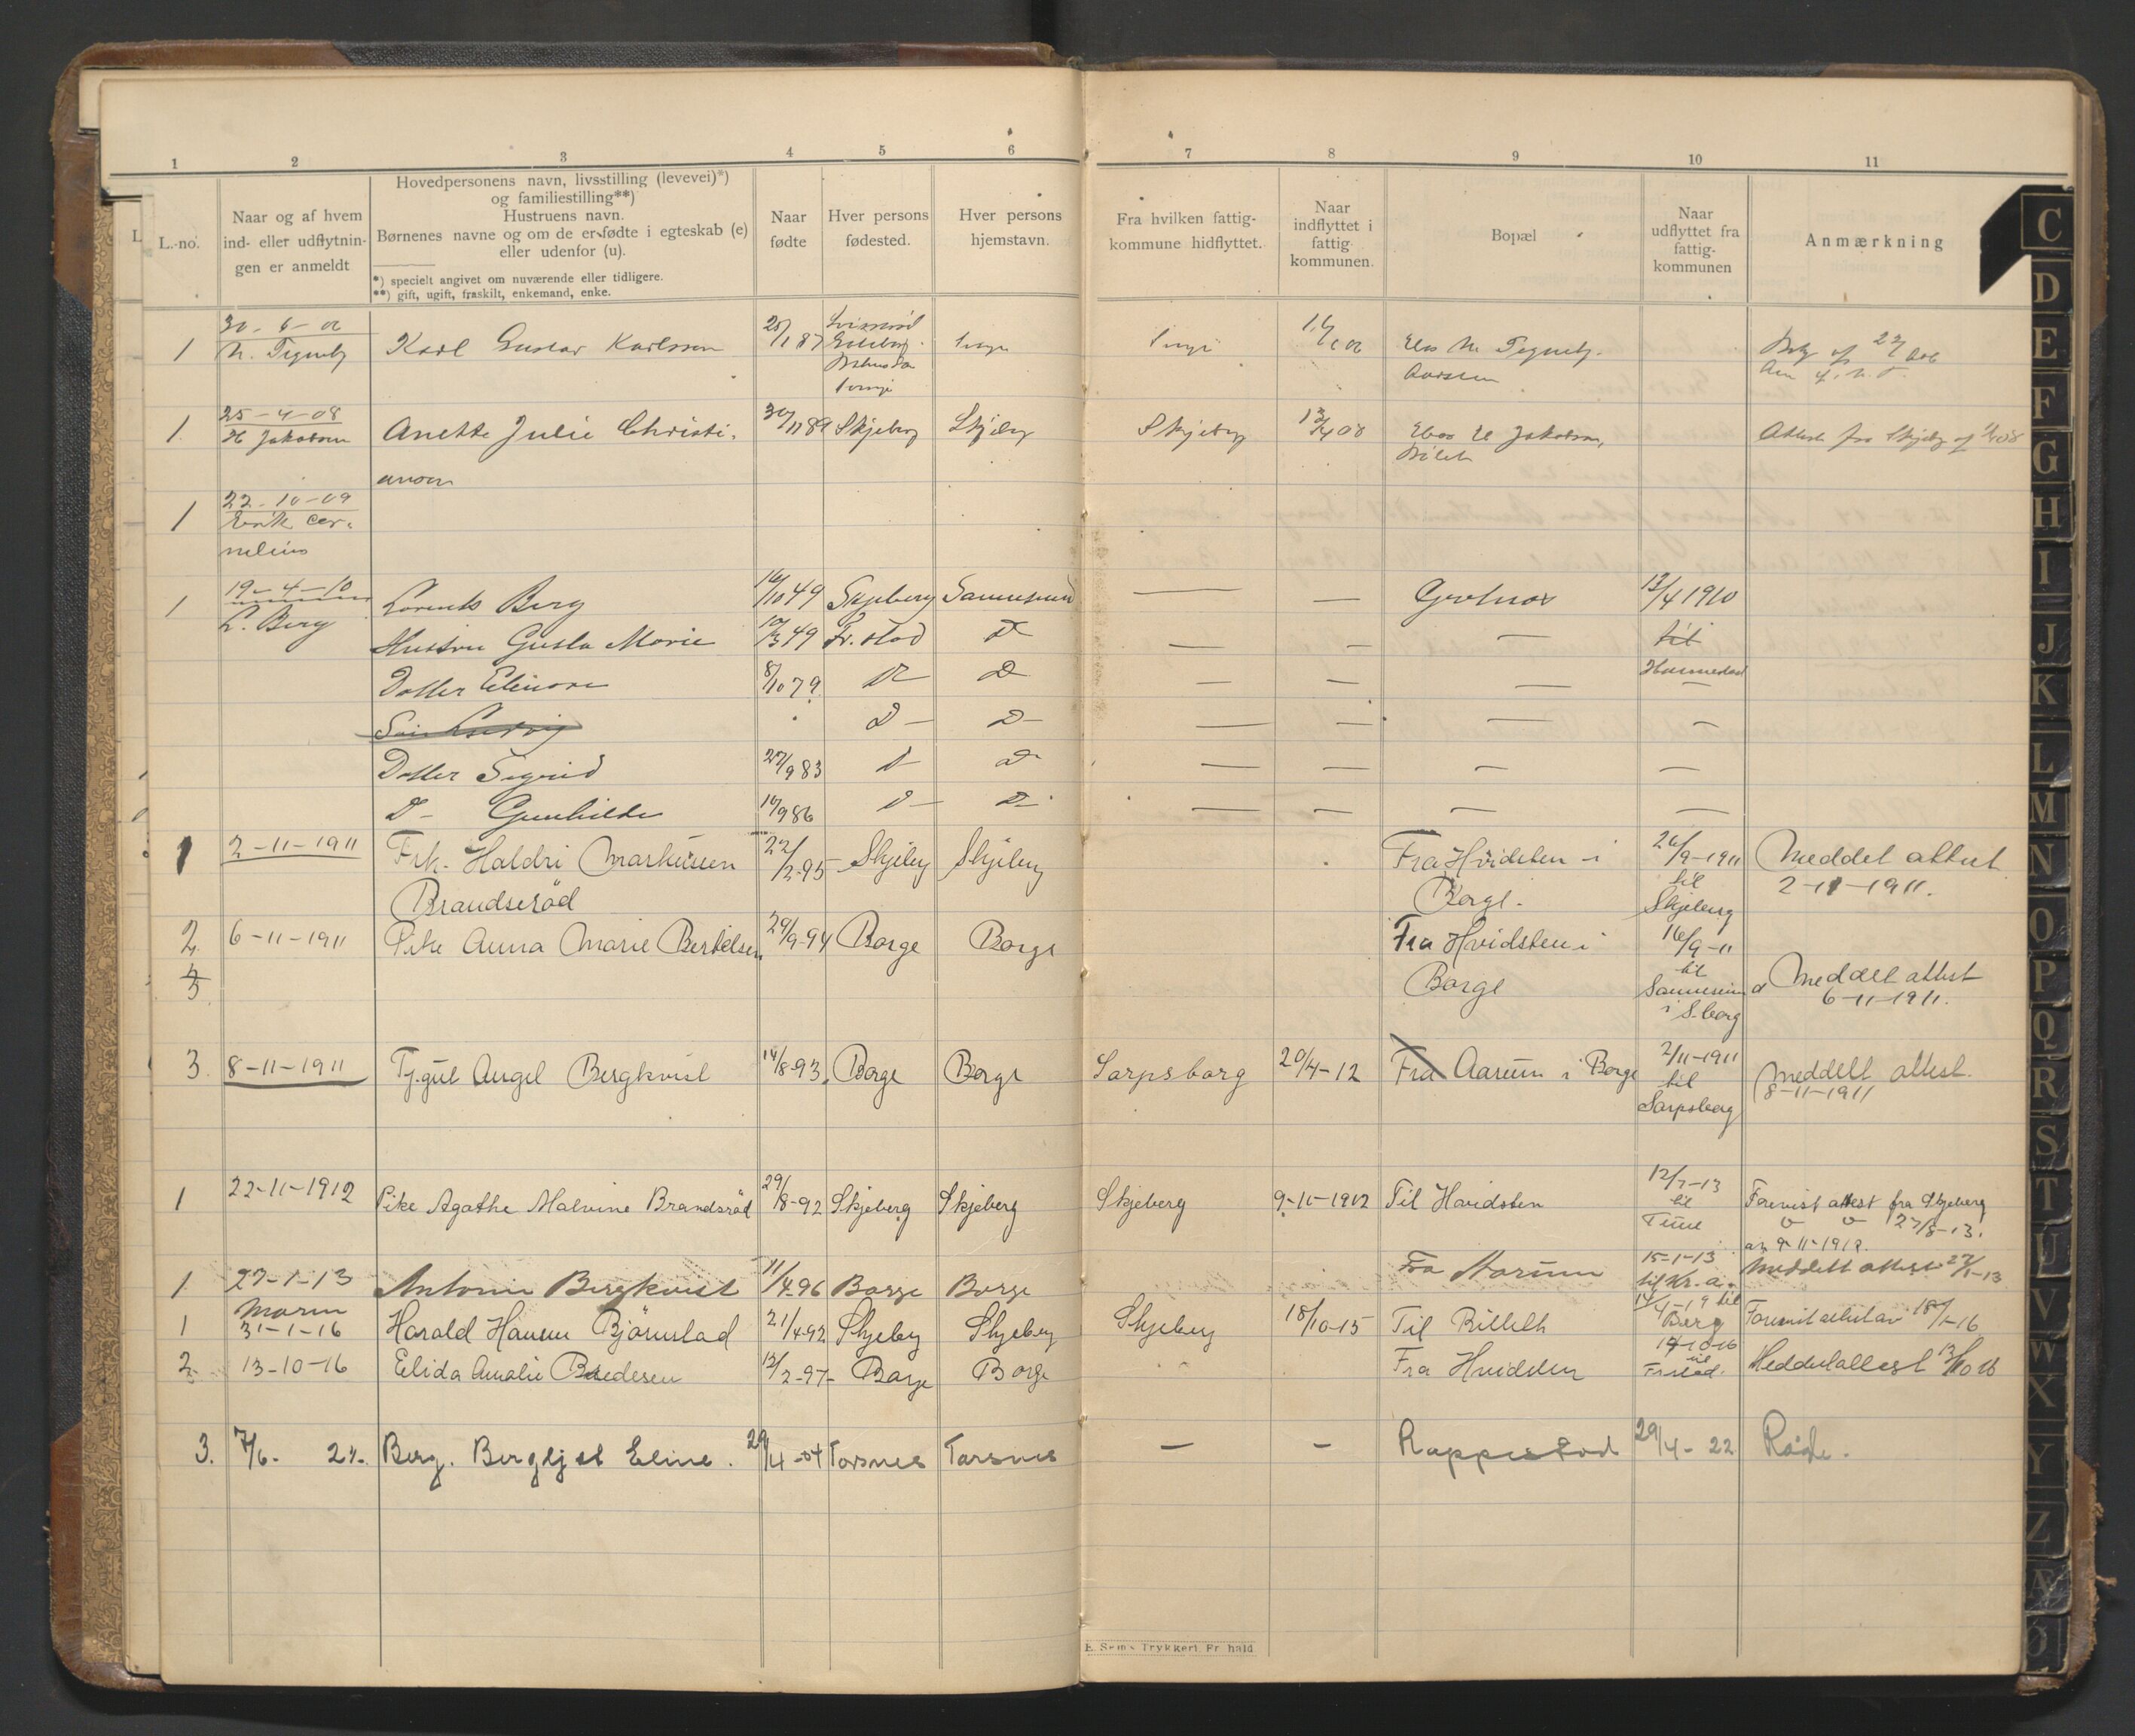 1 2 3 4 5 6 7 8 9 10 11
L.-no.
Naar og af hvem
ind- eller udflytnin-
gen er anmeldt
Hovedpersonens navn, livsstilling (levevei)*)
og familiestilling**)
Hustruens navn.
Børnenes navne og om de er fødte i egteskab (e)
eller udenfor (u).
*) specielt angivet om nuværende eller tidligere.
**) gift, ugift, fraskilt, enkemand, enke.
Naar
fødte
Hver persons
fødested.
Hver persons
hjemstavn.
Fra hvilken fattig-
kommune hidflyttet.
Naar
indflyttet i
fattig-
kommunen.
Bopæl
Naar
udflyttet fra
fattig-
kommunen
Anmærkning
L
30-6-06
1 Karl Gustav Karlsson
25-4-08
1. H Jakobsen Anette Julie Christi- 30/11 89 Skjeberg Skjeberg Skjeberg 08 Jakobsen,
ansen
22-10-09
1 Erik Cor-
nelius
19-4-10
1 L. Berg Lorents Berg 16/10 49 Skjeberg Sannesund — — 13/4 1910
Hustru Gusta Marie 10/3 49 Fr. stad D — — — til
Datter Elinore 8/10 79 D D — — — —
Søn Ludvig D — D — — — — —
Datter Sigrid 27/9 83 D D — — — —
D — Gunhilde 14/9 86 D — D — — — — —
1 2-11-1911 Frk. Haldri Markussen 22/12-95 Skjeberg Skjeberg Fra Hvidsten i 26/9-1911 Meddel attest
Brandserød Borge. til Skjeberg 2-11-1911.
2. 6-11-1911 Pike Anna Marie Bertelsen 29/9-94 Borge Borge Fra Hvidsten i 16/9-11
Borge til Sannesund i S.borg Meddelt attest
6-11-1911.
3. 8-11-1911 Angel Bergkvist 14/8-93. Borge Borge Sarpsborg 20/4-12 Fra Aarum i Borge 2/11-1911 Meddelt attest.
til Sarpsborg 8-11-1911
1 22-11-1912 Pike Agathe Malvine Brandsrød 29/8-92 Skjeberg Skjeberg Skjeberg 9-11-1912 Til Hvidsten 12/7-13 Forevist attest fra Skjeberg
til Tune 27/5-13.
av 9-11-1912.
1. 27-1-13 Antonie Bergkvist 11/4-96 Borge Borge Fra Aarum 15-1-13 Meddelt attest 27/1-13
til Kr.a.
1 31-1-16 Harald Hansen Bjørnstad 21/4-92 Skjeberg Skjeberg Skjeberg 18/10-15 Til Billeth 14/4-19 til Berg Forevist attest av 18/1-16
2. 13-10-16 Elida Amalie Bredesen 12/2-97 Borge Borge Fra Hvidsten 17-10-16 til Fr.stad. Meddelt attest 13/10 16
3. 7/6. 22. Berg. Bergljot Eline. 29/4-04 Torsnes Torsnes — — Rappestad 29/4-22 Råde.
E. Sems Trykkeri, Fr.hald
C
D
E
F
G
H
I
J
K
L
M
N
O
P
Q
R
S
T
U
V
W
X
Y
Z
Æ
Ø